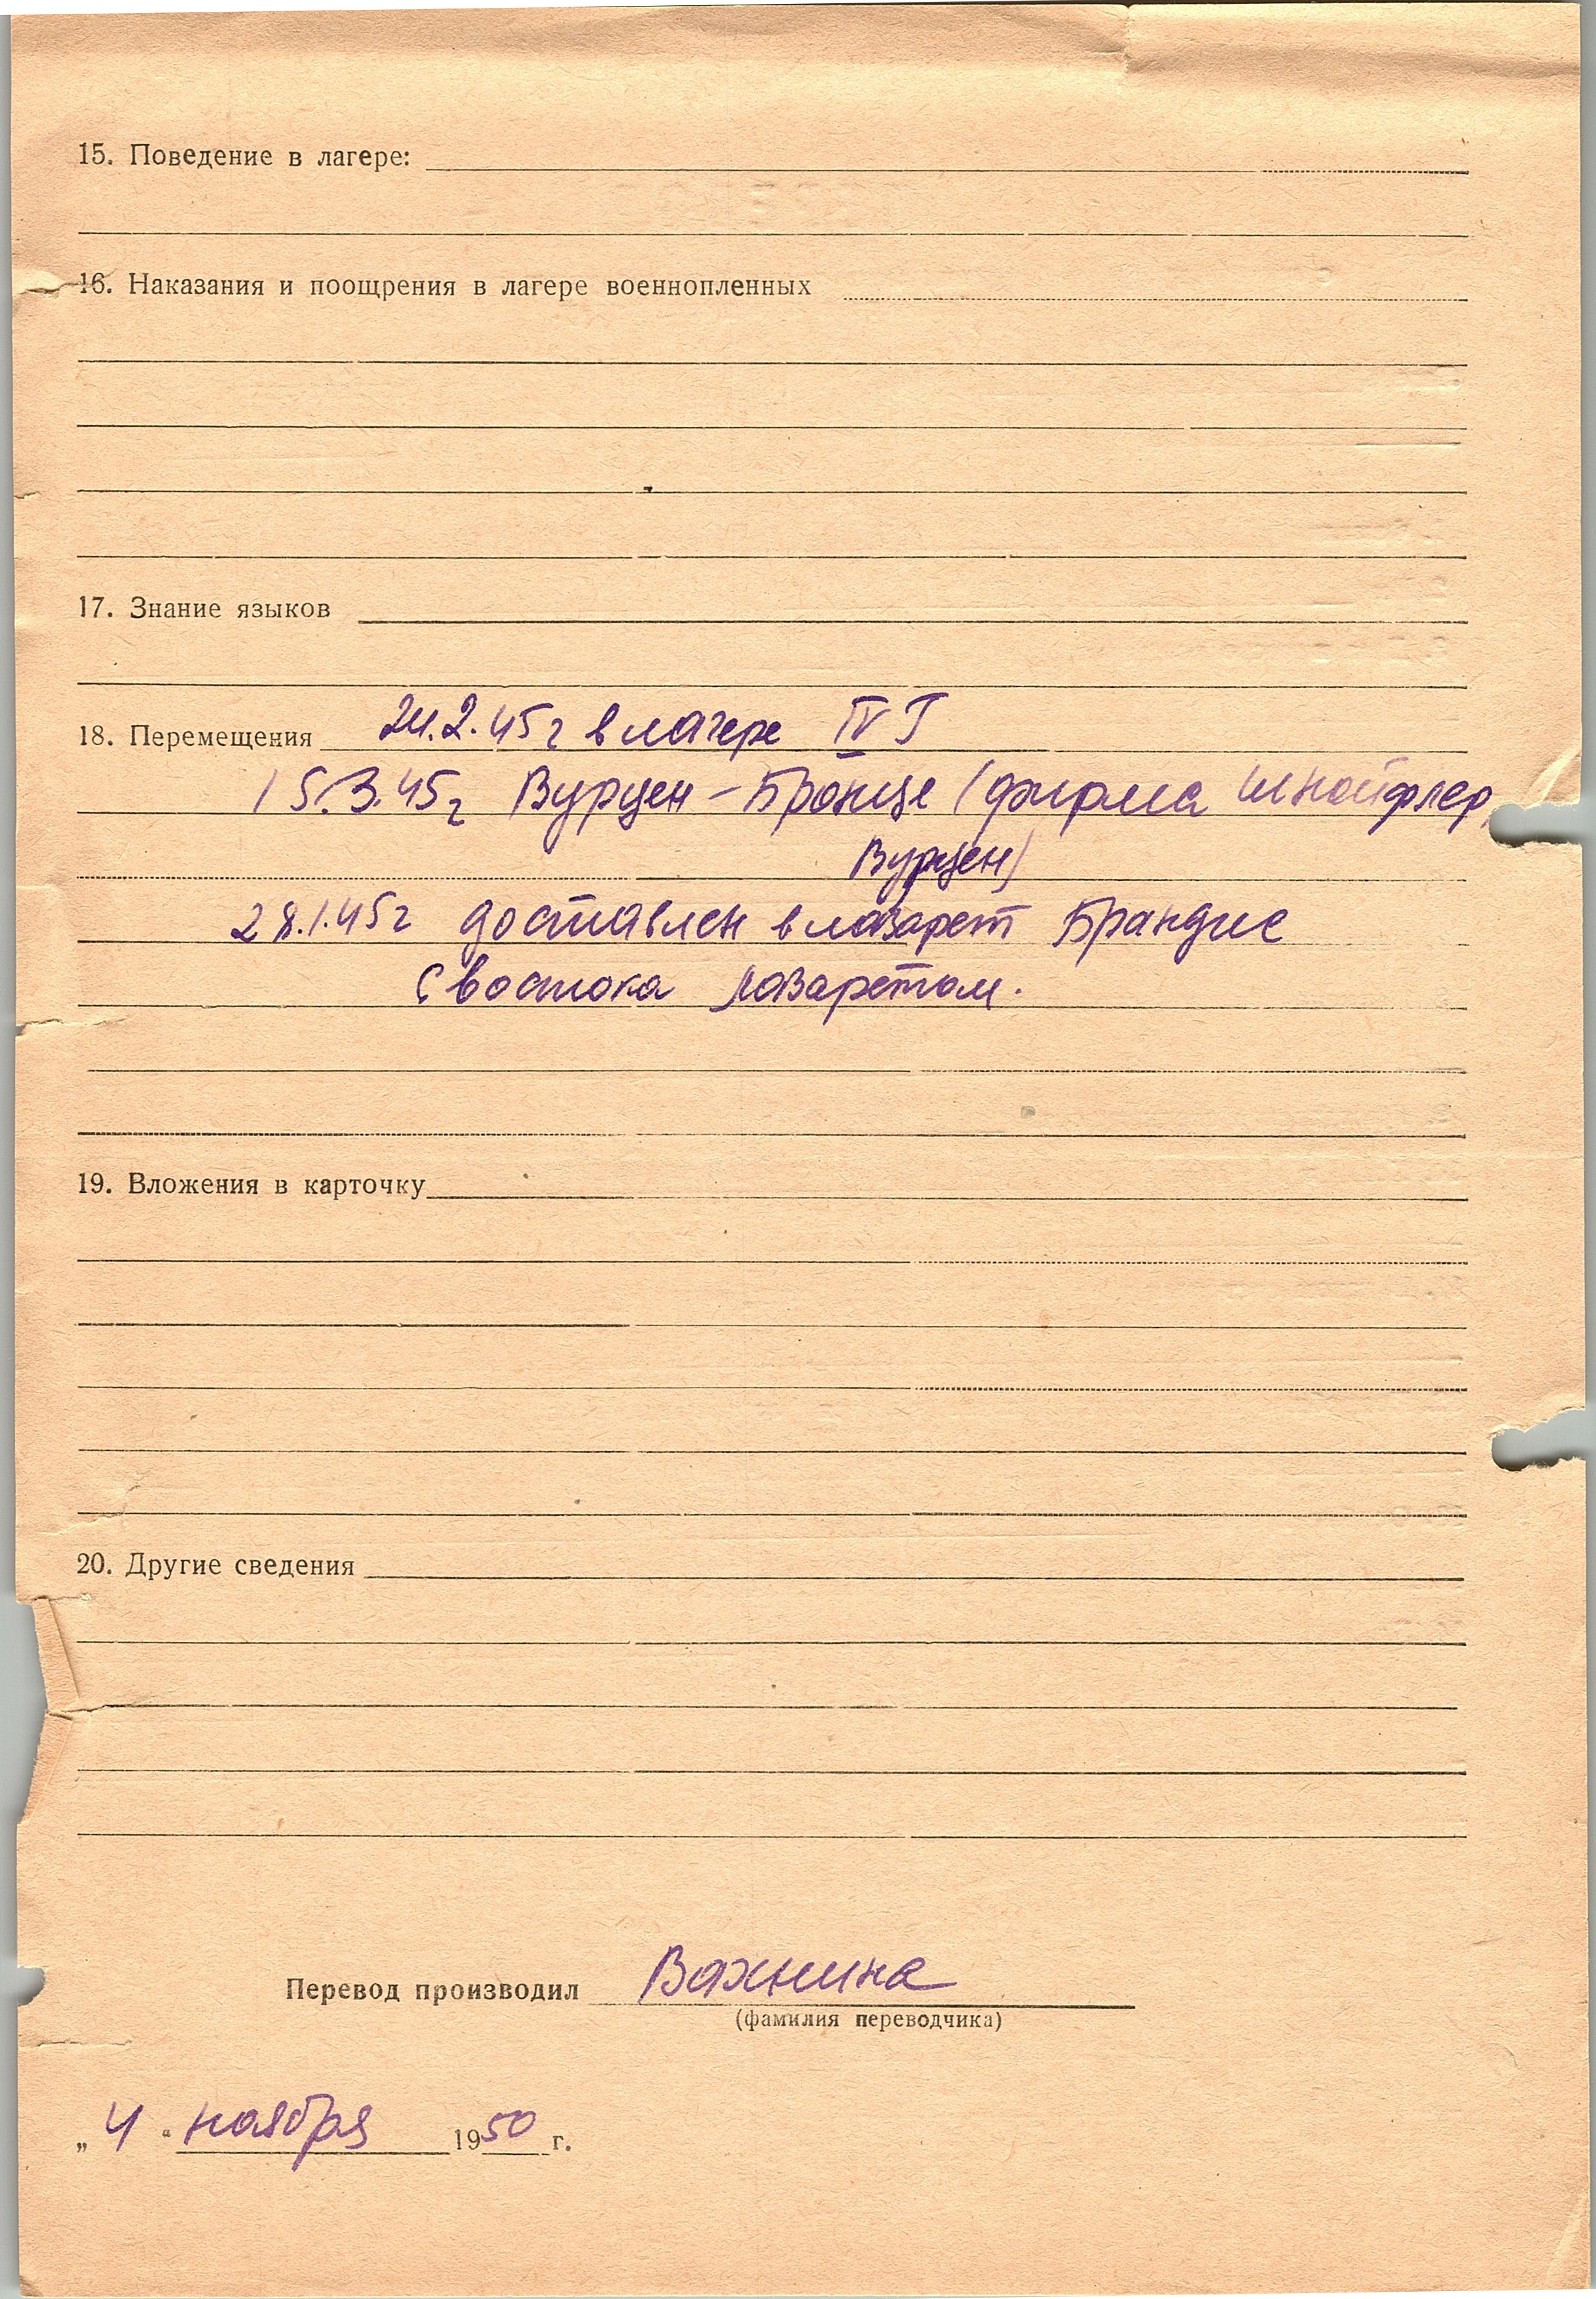 15. Поведение в лагере:
16. Наказания и поощрения в лагере военнопленных
17. Знание языков
18. Перемещения 24.2.45г в лагере IV Г
15.3.45г Вурцен - Бронце (фирма Шнойфлер,
Вурцен)
28.1.45г доставлен в лазарет Брандис
с востока лазаретом.
19. Вложения в карточку
20. Другие сведения
Перевод производил Вахнина
(фамилия переводчика)
„4“ ноября 1950 г.